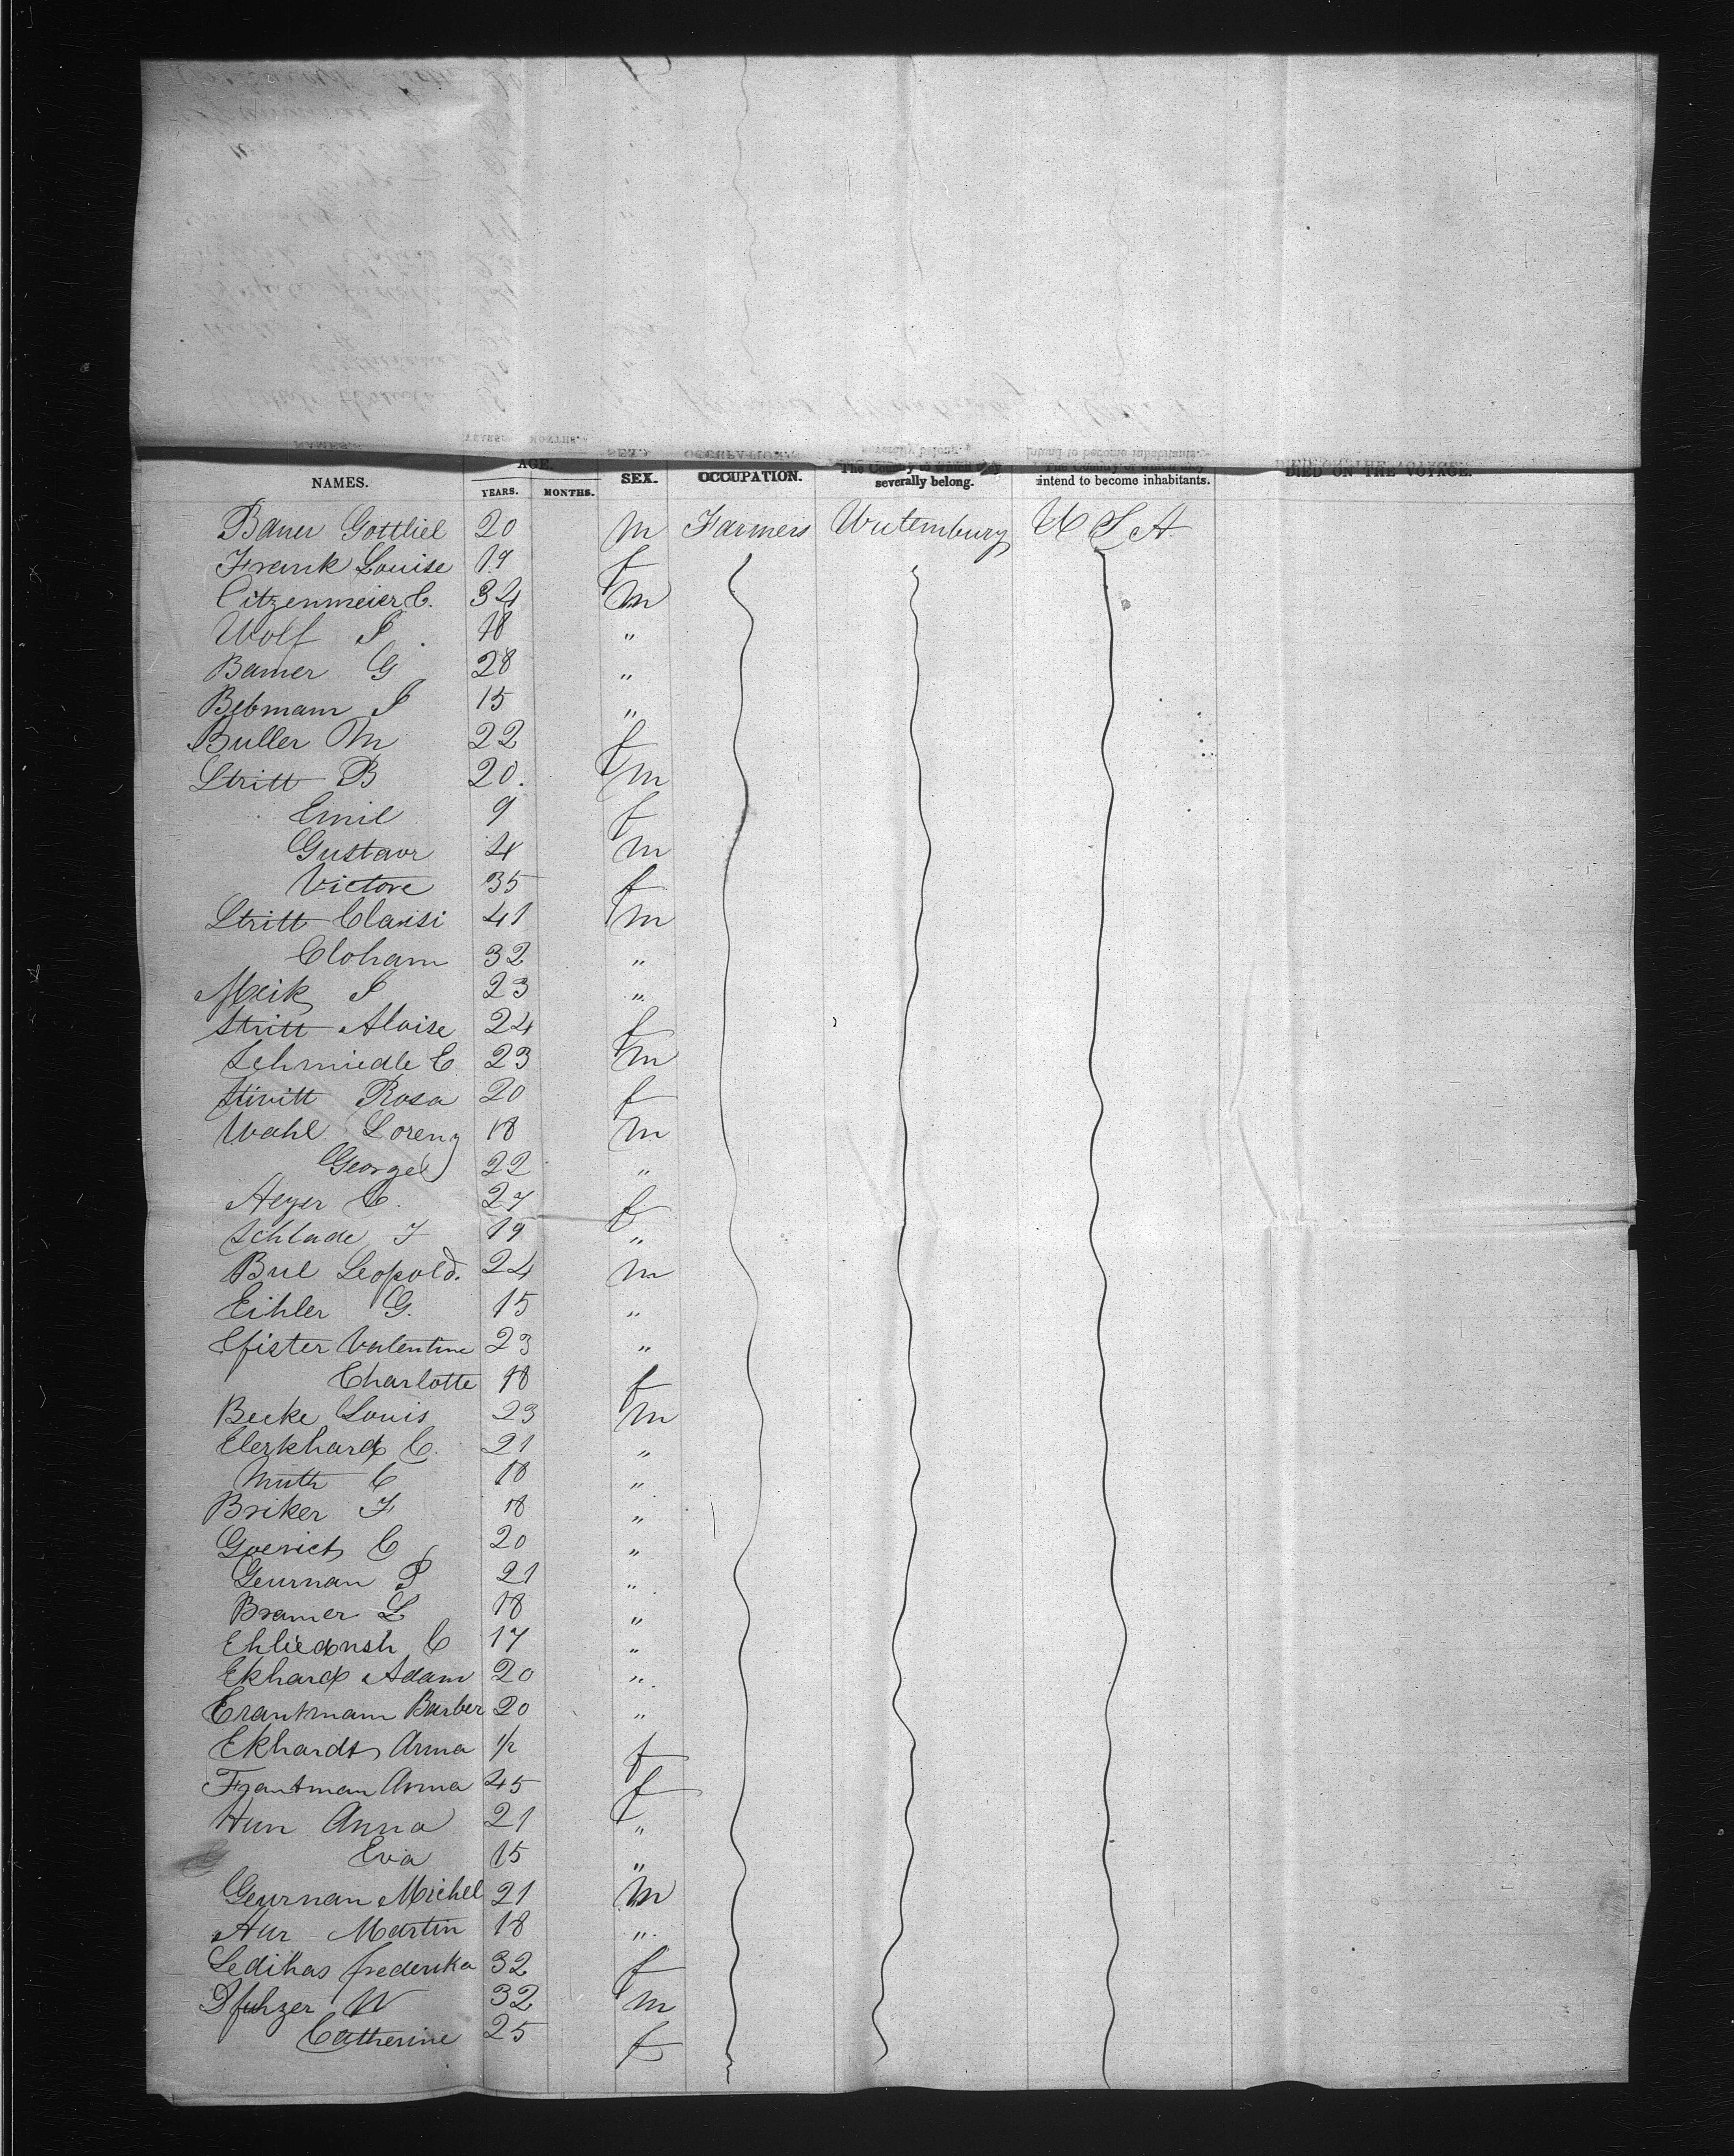 NAMES. AGE. SEX. OCCUPATION. The Country to which they severally belong. The Country of which they intend to become inhabitants. DIED ON THE VOYAGE.
YEARS. MONTHS.
Bauer Gottliel 20 m Farmers Wutemburg U S A
Frank Louise 17 f
Citzenmeier C. 34 m
Wolf J. 18 "
Bamer G 28 "
Bebmam J 15 "
Buller M 22 f
Stritt B 20. m
Emil 9 f
Gustavr 4 m
Victore 35 f
Stritt Clausi 41 m
Cloham 32 "
Meik J 23 "
Stritt Aloise 24 f
Schmiedle C 23 m
Stivitt Rosa 20 f
Wahl Lorenz 18 m
George 22 "
Aeyer C. 27 f
Schlade F 19 "
Bul Leopold. 24 m
Eihler G. 15 "
Cfister Valentine 23 "
Charlotte 18 f
Becke Louis 23 m
Clezkhard C. 21 "
Muth C 18 "
Briker F 18 "
Goerich C 20 "
Geurnan P 21 "
Bramer L 18 "
C 17 "
Ekhard Adam 20 "
Crantmam Barber 20 "
Ekhardt Anna 1/2 f
Frantman Anna 45 f
Hun Anna 21 "
Eva 15 "
Geurnan Michel 21 m
Aur Martin 18 "
Ledihas frederika 32 f
Dfuhzer W 32 m
Catherine 25 f